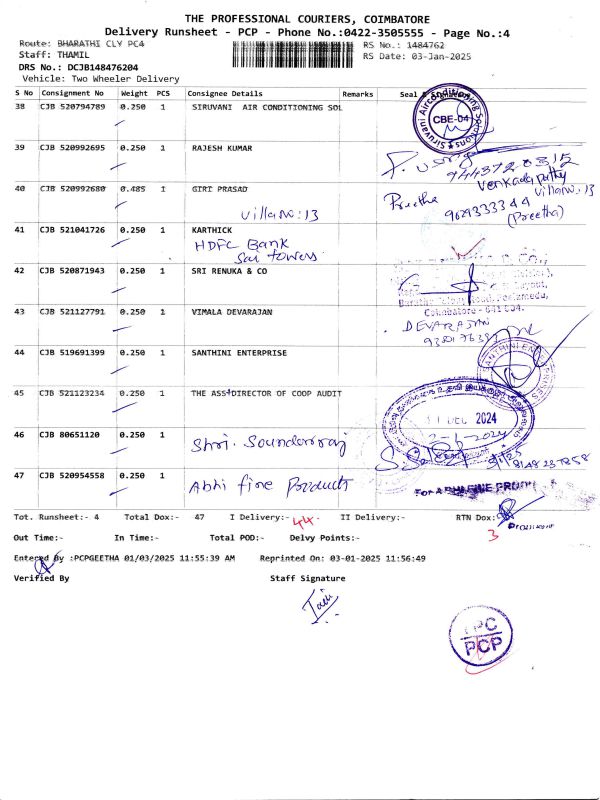 THE PROFESSIONAL COURIERS, COIMBATORE
Delivery Runsheet - PCP - Phone No.:0422-3505555 - Page No.:4
Route: BHARATHI CLY PC4
RS No.: 1484762
Staff: THAMIL
RS Date: 03-Jan-2025
DRS No.: DCJB148476204
Vehicle: Two Wheeler Delivery
S No Consignment No Weight PCS Consignee Details Remarks Seal & Signature
38 CJB 520794789 0.250 1 SIRUVANI AIR CONDITIONING SOL
Siruvani Airconditioning Solutions
CBE-04
39 CJB 520992695 0.250 1 RAJESH KUMAR
9443720315
Venkadapathy
40 CJB 520992680 0.485 1 GIRI PRASAD
Villa no: 13
Preetha
Villa no: 13
9629333344
(Preetha)
41 CJB 521041726 0.250 1 KARTHICK
HDFC Bank
Sai towers
42 CJB 520871943 0.250 1 SRI RENUKA & CO
Coimbatore - 641 004.
43 CJB 521127791 0.250 1 VIMALA DEVARAJAN
DEVARAJAN
44 CJB 519691399 0.250 1 SANTHINI ENTERPRISE
SANTHINI ENTERPRISES
45 CJB 521123234 0.250 1 THE ASST DIRECTOR OF COOP AUDIT
DEC 2024
46 CJB 80651120 0.250 1 Shri. Soundarraj
47 CJB 520954558 0.250 1 Abhi fine Products
For ABHI FINE PRODU
Tot. Runsheet:- 4 Total Dox:- 47 I Delivery:- 44 II Delivery:- RTN Dox:- 3
Out Time:- In Time:- Total POD:- Delvy Points:-
Entered By :PCPGEETHA 01/03/2025 11:55:39 AM Reprinted On: 03-01-2025 11:56:49
Verified By Staff Signature
PCP